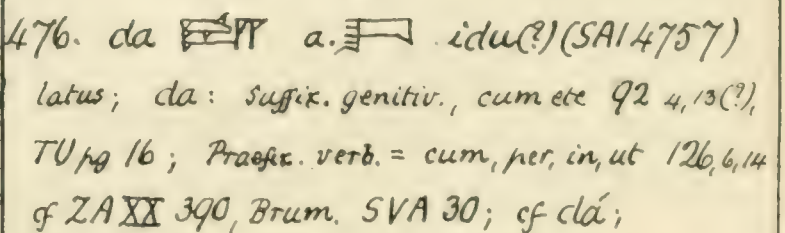 476. da a. idu(?) (SAI 4757)
latus; da: Suffix. genitiv., cum etc 92 4,13(?),
TU pg 16; Praefix. verb. = cum, per, in, ut 126,6,14
cf ZA XX 390, Brum. SVA 30; cf dá;